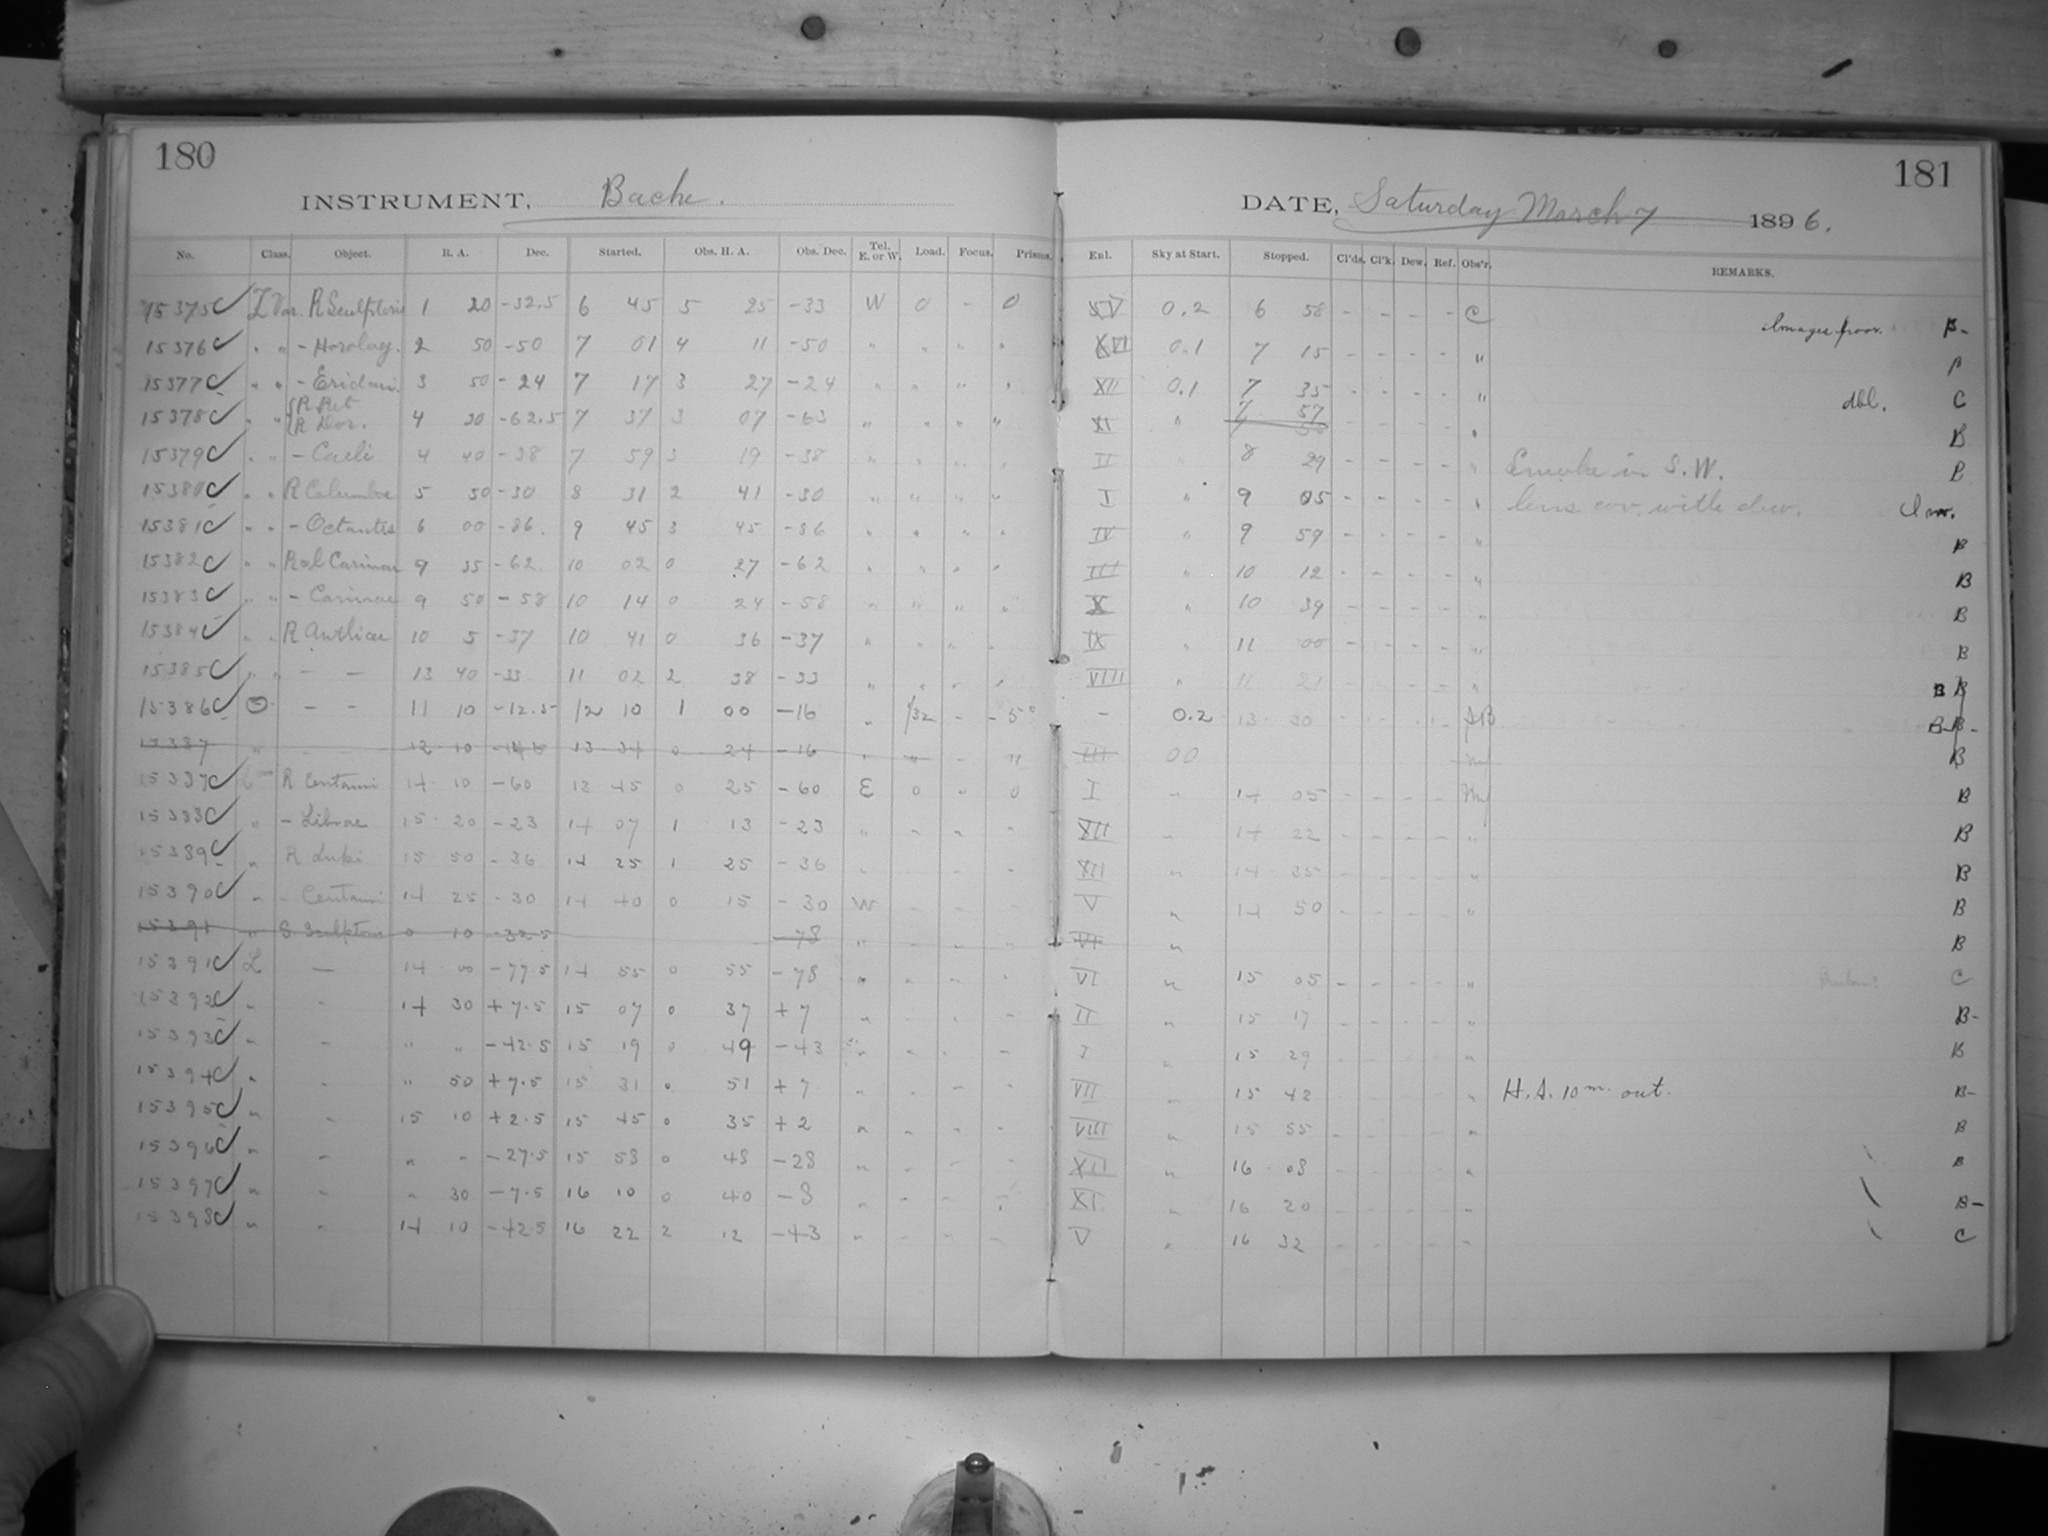 180
181
INSTRUMENT, Bache.
DATE, Saturday March 7 1896.
No. Class. Object. R. A. Dec. Started. Obs. H. A. Obs. Dec. Tel. E. or W. Load. Focus. Prisms. Enl. Sky at Start. Stopped. Cl'ds. Cl'k. Dew. Ref. Obs'r. REMARKS.
15375 L Var. R Sculptoris 1 20 -32.5 6 45 5 25 -33 W 0 - 0 XV 0.2 6 58 - - - - C Images poor. B-
15376 " " - Horolog. 2 50 -50 7 01 4 11 -50 " " " " XVI 0.1 7 15 - - - - "
15377 " " - Eridani 3 50 -24 7 17 3 27 -24 " " " " XII 0.1 7 35 - - - - " dbl. C
15378 " " {R Ret R Dor. 4 30 -62.5 7 37 3 07 -63 " " " " XI " 7 57 - - - - " B
15379 " " - Caeli 4 40 -38 7 59 3 19 -38 " " " " II " 8 29 - - - - " Smoke in S.W. B
15380 " " R Columbae 5 50 -30 8 31 2 41 -30 " " " " I " 9 05 - - - - " lens cov. with dew.
15381 " " - Octantis 6 00 -86. 9 45 3 45 -86 " " " " IV " 9 59 - - - - " B
15382 " " R & l Carinae 9 35 -62. 10 02 0 27 -62 " " " " III " 10 12 - - - - " B
15383 " " - Carinae 9 50 -58 10 14 0 24 -58 " " " " X " 10 39 - - - - " B
15384 " " R Antliae 10 5 -37 10 41 0 36 -37 " " " " IX " 11 00 - - - - " B
15385 " " - - 13 40 -33 11 02 2 38 -33 " " " " VIII " 11 21 - - - - " B B
15386 - - 11 10 -12.5 12 10 1 00 -16 " 1/32 - - 5° - 0.2 13 30 - - - - AB B-
15387 " - - 12 10 13 34 0 24 -16 " " " " III 00 B
15387 R Centauri 14 10 -60 13 45 0 25 -60 E 0 " 0 I " 14 05 - - - - B
15388 " - Librae 15 20 -23 14 07 1 13 -23 " " " " XII " 14 22 - - - - " B
15389 " R Lupi 15 50 -36 14 25 1 25 -36 " " " " XII " 14 35 - - - - " B
15390 " - Centauri 14 25 -30 14 40 0 15 -30 W - - - V " 14 50 - - - - " B
15391 " S. Sculptoris 0 10 -32.5 -78 " " " " VI " B
15391 L - 14 00 -77.5 14 55 0 55 -78 " " " " VI " 15 05 - - - - " C
15392 " - 14 30 +7.5 15 07 0 37 +7 " " " " II " 15 17 - - - - " B-
15393 " - " " -42.5 15 19 0 49 -43 " " " " I " 15 29 - - - - " B
15394 " - " 50 +7.5 15 31 0 51 +7 " " " " VII " 15 42 - - - - " H. A. 10m. out. B-
15395 " - 15 10 +2.5 15 45 0 35 +2 " " " " VIII " 15 55 - - - - " B
15396 " - " " -27.5 15 58 0 48 -28 " " " " XII " 16 08 - - - - " B
15397 " - " 30 -7.5 16 10 0 40 -8 " " " " XI. " 16 20 - - - - " B-
15398 " - 14 10 -42.5 16 22 2 12 -43 " " " " V " 16 32 - - - - " C